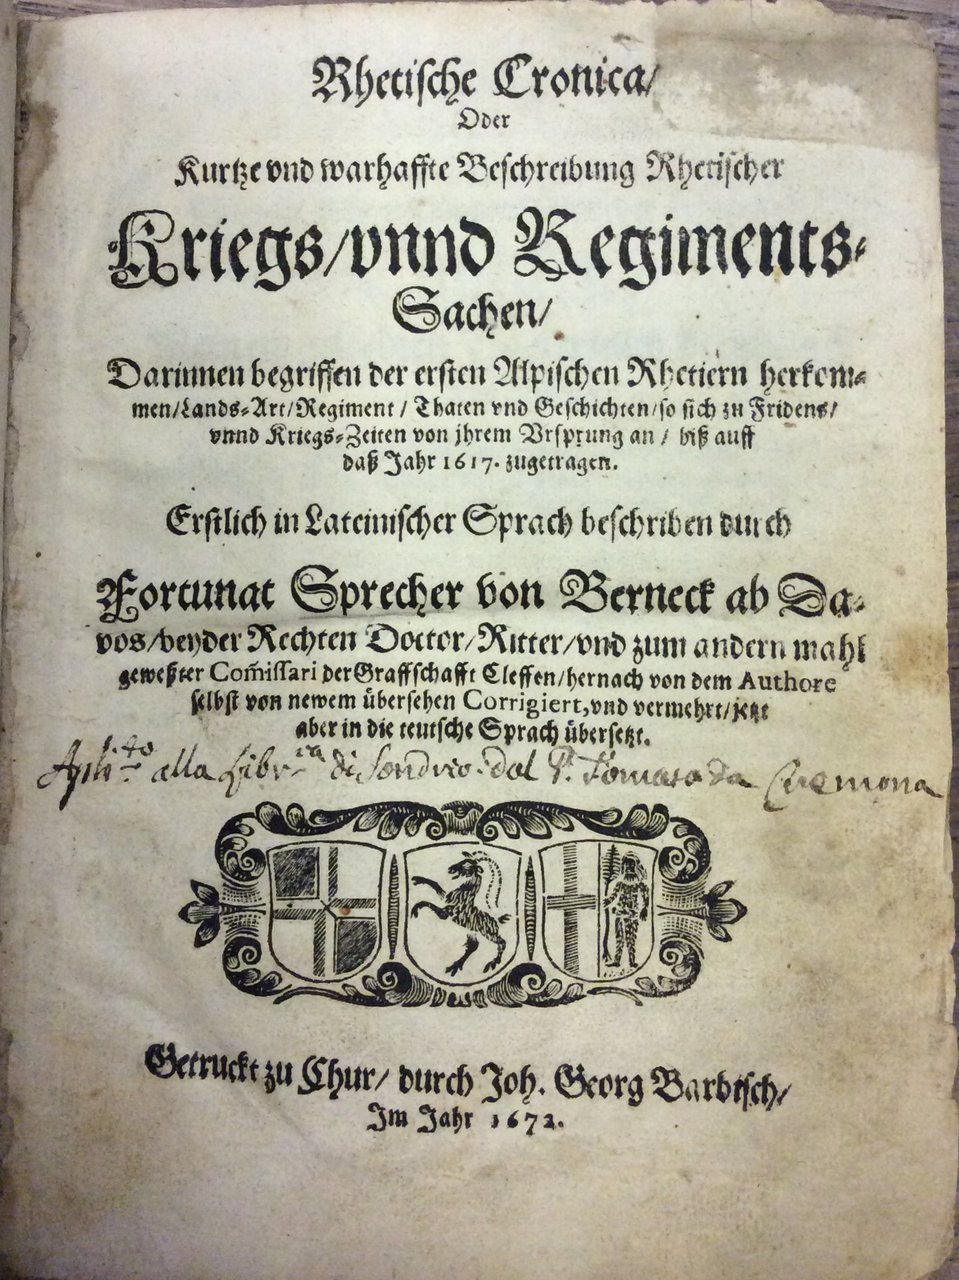 Rhetische Cronica/
Oder
Kurtze vnd warhaffte Beschreibung Rhetischer
Kriegs/vnnd Regiments-
Sachen/
Darinnen begriffen der ersten Alpischen Rhetiern herkom-
men/Lands-Art/Regiment/Thaten vnd Geschichten/so sich zu Fridens/
vnnd Kriegs-Zeiten von jhrem Vrsprung an/ biß auff
daß Jahr 1617. zugetragen.
Erstlich in Lateinischer Sprach beschriben durch
Fortunat Sprecher von Berneck ab Da-
vos/beyder Rechten Doctor/Ritter/vnd zum andern mahl
geweßter Com̃issari der Graffschafft Cleffen/hernach von dem Authore
selbst von newem übersehen Corrigiert,vnd vermehrt/jetzt
aber in die teutsche Sprach übersetzt.
alla Libr.ria di Sondrio. dal P. Tomaso da Cremona
Getruckt zu Chur/ durch Joh. Georg Barbisch/
Im Jahr 1672.